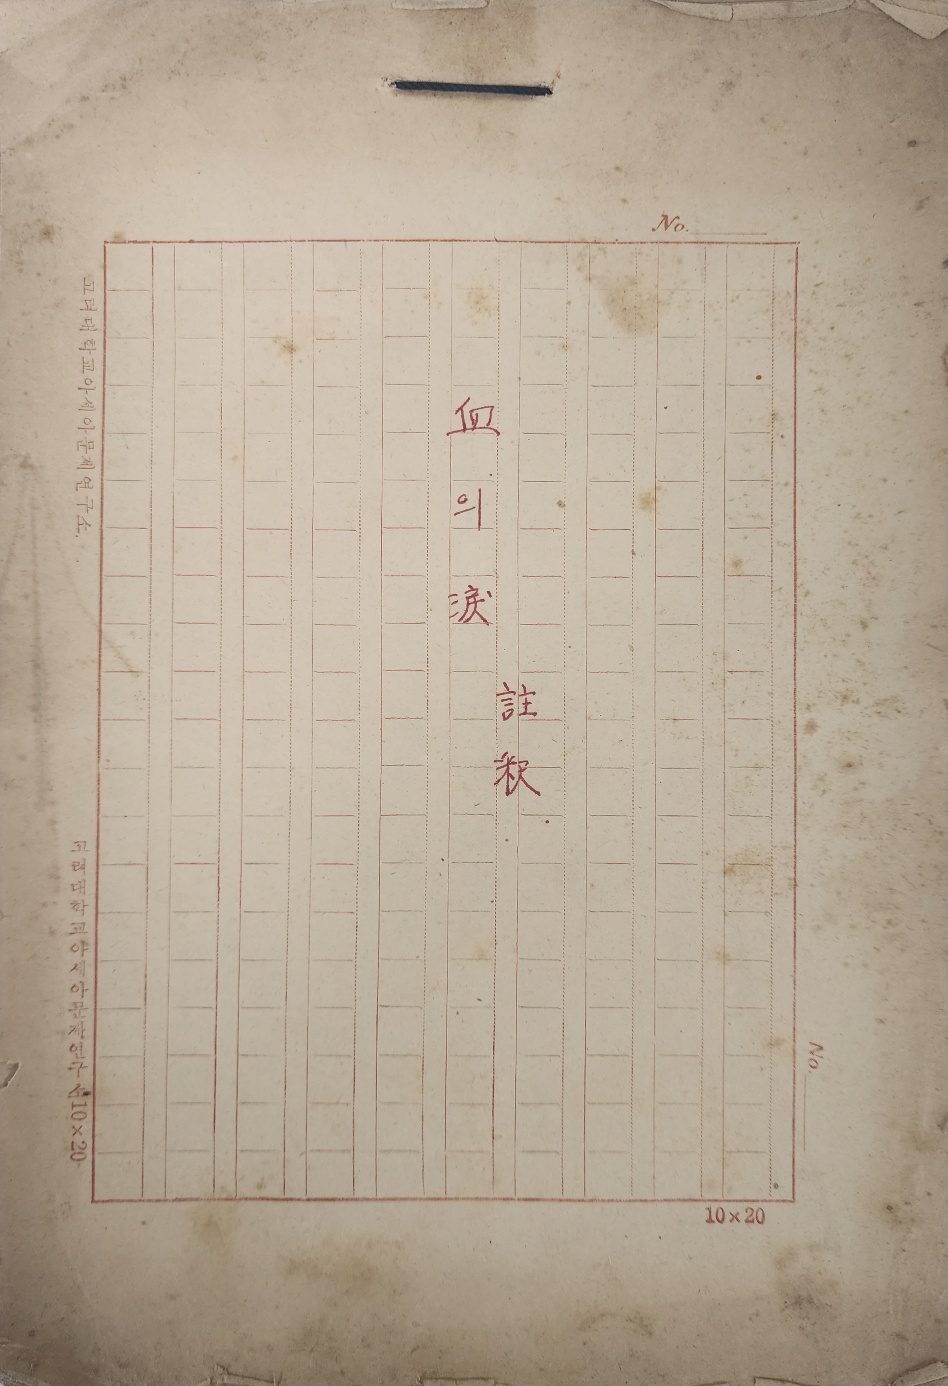 No.
血의淚
註釈
고려대학교아세아문제연구소
고려대학교아세아문제연구소10×20
No.
10×20